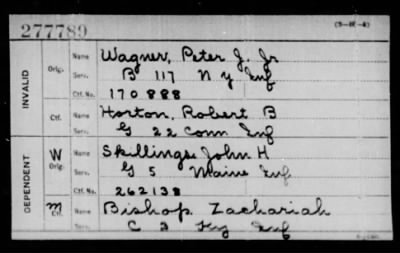 277789
(3-H-4)
INVALID
Orig. Name Wagner, Peter J. Jr
Serv. B 117 N Y Inf
Ctf. No. 170888
Ctf. Name Horton, Robert B
Serv. G 22 Conn Inf
DEPENDENT
W Orig. Name Skillings John H
Serv. G 5 Maine Inf
Ctf. No. 262138
m Ctf. Name Bishop Zachariah
Serv. C 3 Ky Inf